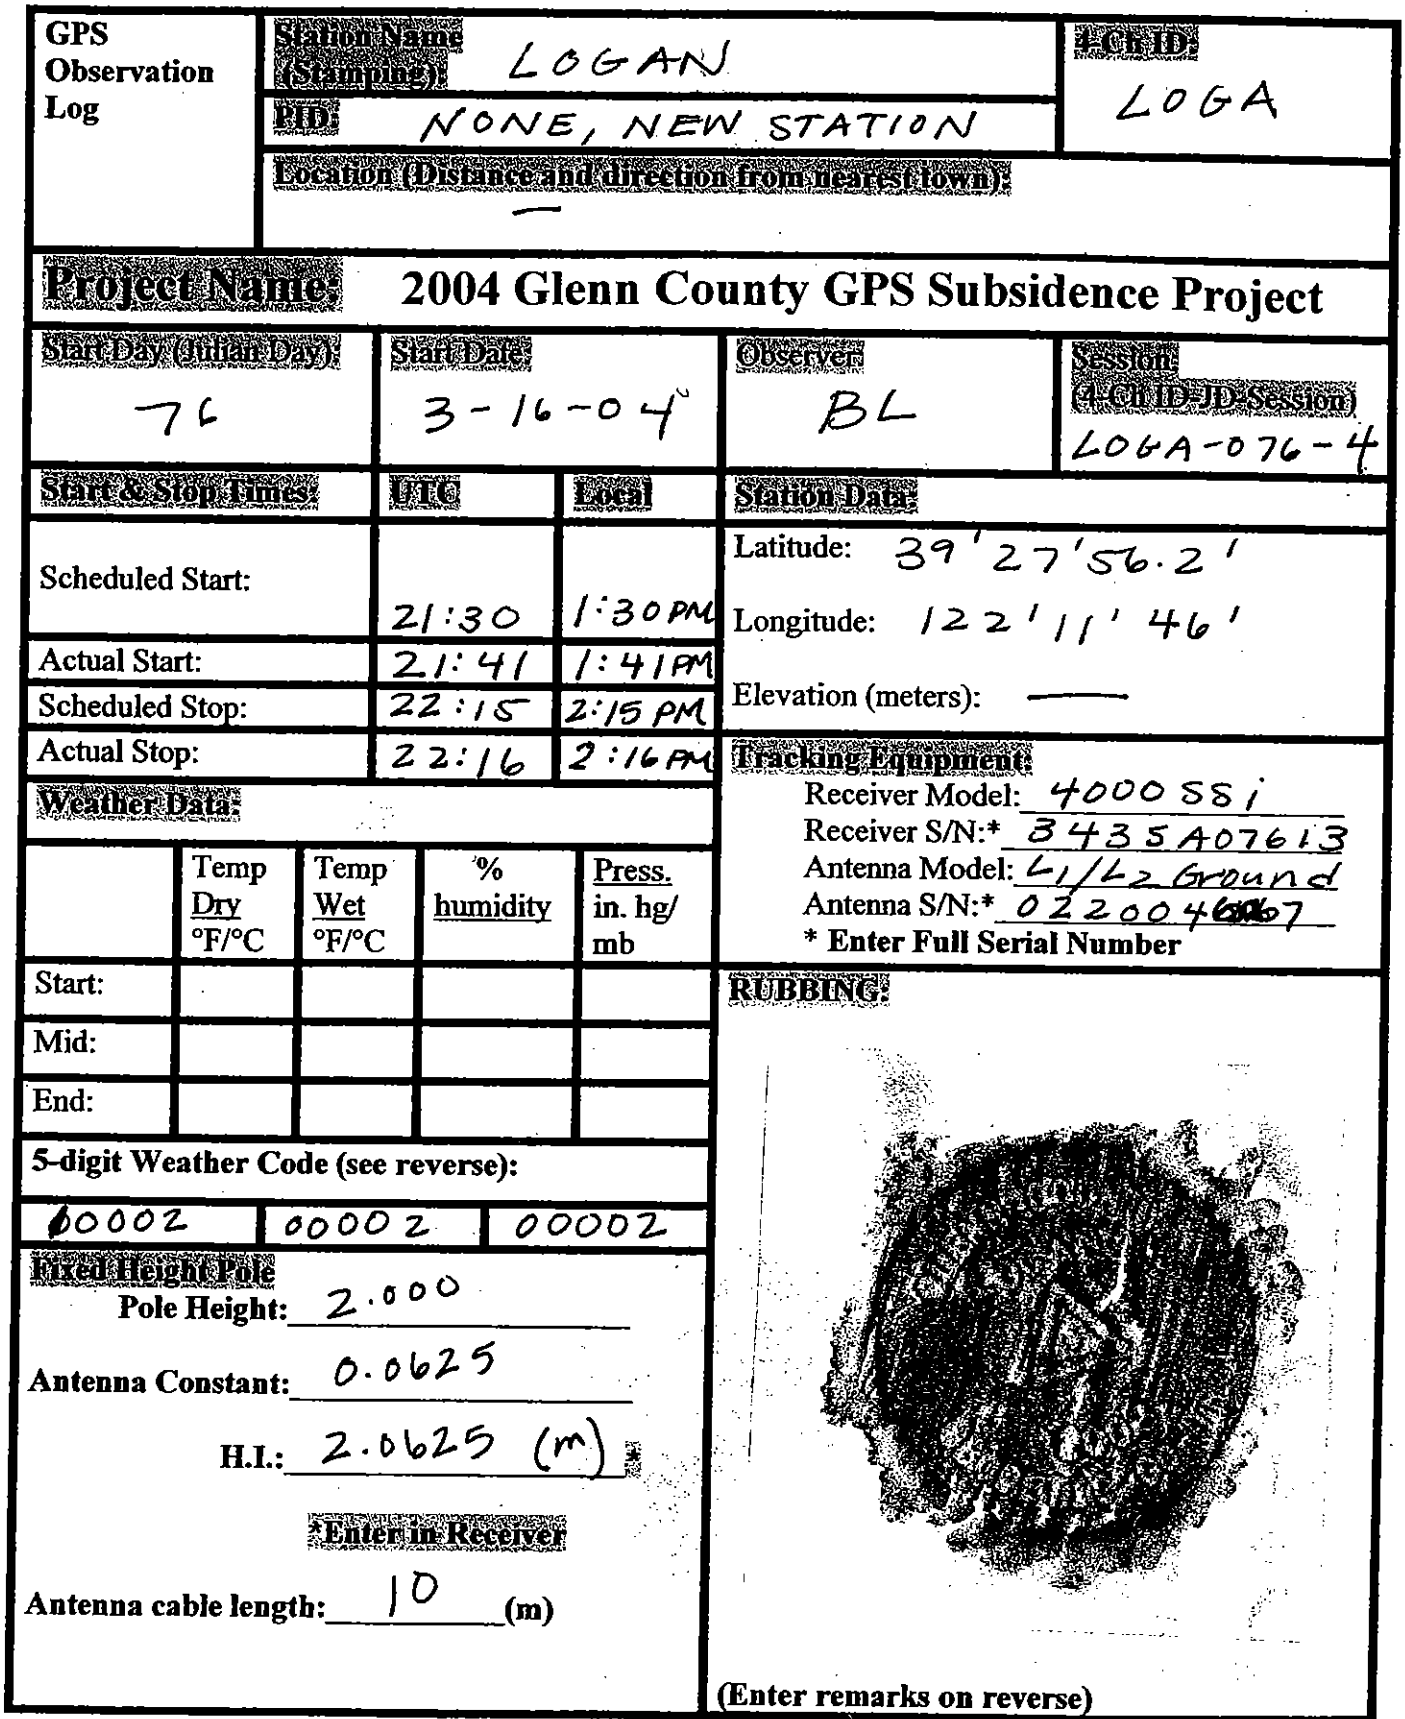 GPS
Observation
Log
Station Name
(Stamping):
LOGAN
4-Ch ID:
LOGA
PID:
NONE, NEW STATION
Location (Distance and direction from nearest town):
—
Project Name: 2004 Glenn County GPS Subsidence Project
Start Day (Julian Day):
76
Start Date:
3-16-04
Observer:
BL
Session:
(4-Ch ID-JD-Session)
LOGA-076-4
Start & Stop Times: UTC Local
Scheduled Start: 21:30 1:30 PM
Actual Start: 21:41 1:41 PM
Scheduled Stop: 22:15 2:15 PM
Actual Stop: 22:16 2:16 PM
Station Data:
Latitude: 39' 27' 56.2'
Longitude: 122' 11' 46'
Elevation (meters): —
Tracking Equipment:
Receiver Model: 4000 SSi
Receiver S/N:* 3435A07613
Antenna Model: L1/L2 Ground
Antenna S/N:*
* Enter Full Serial Number
Weather Data:
Temp
Dry
°F/°C
Temp
Wet
°F/°C
%
humidity
Press.
in. hg/
mb
Start:
Mid:
End:
5-digit Weather Code (see reverse):
00002 00002 00002
Fixed Height Pole
Pole Height: 2.000
Antenna Constant: 0.0625
H.I.: 2.0625 (m) *
*Enter in Receiver
Antenna cable length: 10 (m)
RUBBING:
(Enter remarks on reverse)